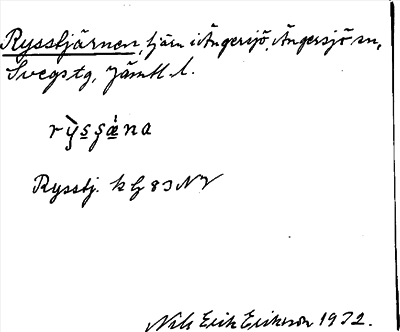 Rysstjärnen, tjärn i Ängersjö, Ängersjö sn,
Svegs tg, Jämtl. l.
rỳsʂæ̀na
Rysstj. kg 83 NV
Nils Erik Erikson 1932.